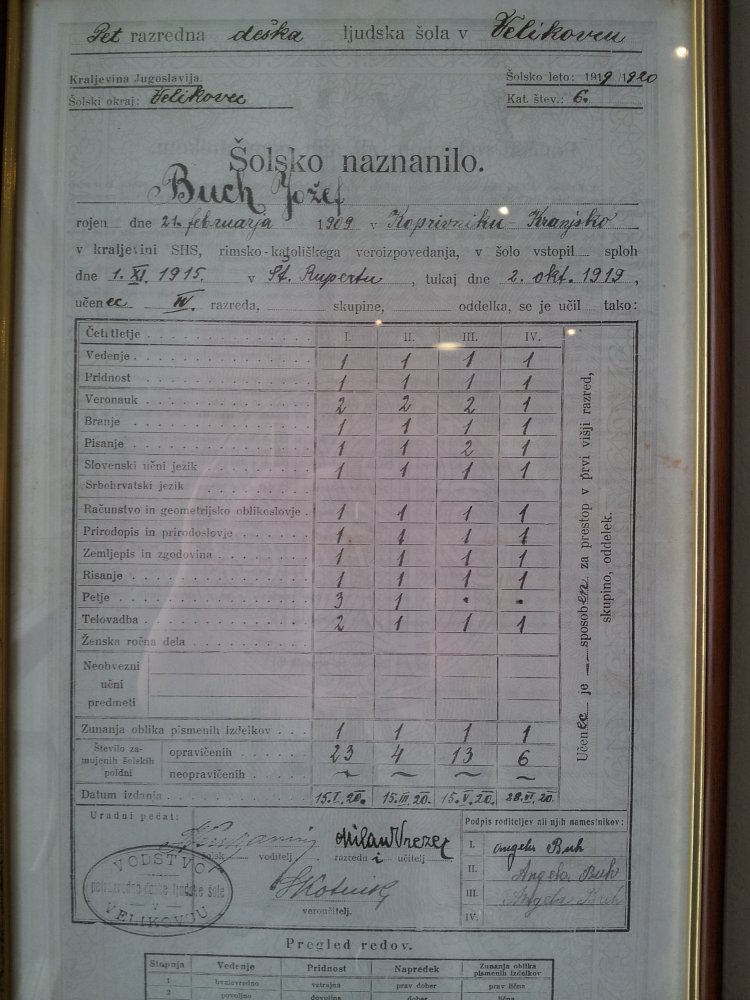 Pet razredna deška ljudska šola v Velikovcu
Kraljevina Jugoslavija.
Šolsko leto: 1919/1920
Šolski okraj: Velikovec
Kat. štev.: 6.
Šolsko naznanilo.
Buch Jožef
rojen dne 21. februarja 1909 v Koprivniku - Kranjsko
v kraljevini SHS, rimsko-katoliškega veroizpovedanja, v šolo vstopil sploh
dne 1. XI. 1915. v Št. Rupertu, tukaj dne 2. okt. 1919,
učenec IV. razreda, skupine, oddelka, se je učil tako:
Četrtletje I. II. III. IV.
Vedenje 1 1 1 1
Pridnost 1 1 1 1
Veronauk 2 2 2 1
Branje 1 1 1 1
Pisanje 1 1 2 1
Slovenski učni jezik 1 1 1 1
Srbohrvatski jezik
Računstvo in geometrijsko oblikoslovje 1 1 1 1
Prirodopis in prirodoslovje 1 1 1 1
Zemljepis in zgodovina 1 1 1 1
Risanje 1 1 1 1
Petje 3 1 • •
Telovadba 2 1 1 1
Ženska ročna dela
Neobvezni
učni
predmeti
Zunanja oblika pismenih izdelkov 1 1 1 1
Število zamujenih šolskih poldni
opravičenih 23 4 13 6
neopravičenih ~ ~ ~ ~
Datum izdanja 15. I. 20. 15. III. 20. 15. V. 20. 28. VI. 20.
Učenec je — sposoben za prestop v prvi višji razred,
skupino, oddelek.
Uradni pečat:
Milan Vrezec
šolsk voditelj razredni učitelj
Kotnik
veroučitelj.
VODSTVO
petrazredne deške ljudske šole
v
VELIKOVCU
Podpis roditeljev ali njih namestnikov:
I. Angela Buh
II. Angela Buh
III. Angela Buh
IV.
Pregled redov.
Stopnja Vedenje Pridnost Napredek Zunanja oblika pismenih izdelkov
1 hvalevredno vztrajna prav dober prav lična
2 povoljno dovoljna dober lična